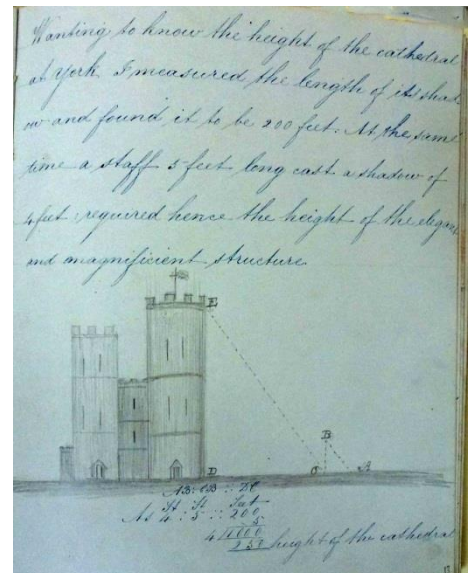 Wanting to know the height of the cathedral
at York I measured the length of its shad
ow and found it to be 200 feet. At the same
time a staff 5 feet long cast a shadow of
4 feet; required hence the height of the elegant
and magnificient structure
E
B
D C A
AB : CB :: DC
ft ft feet
As 4 : 5 :: 200
5
4)1000
250 height of the cathedral